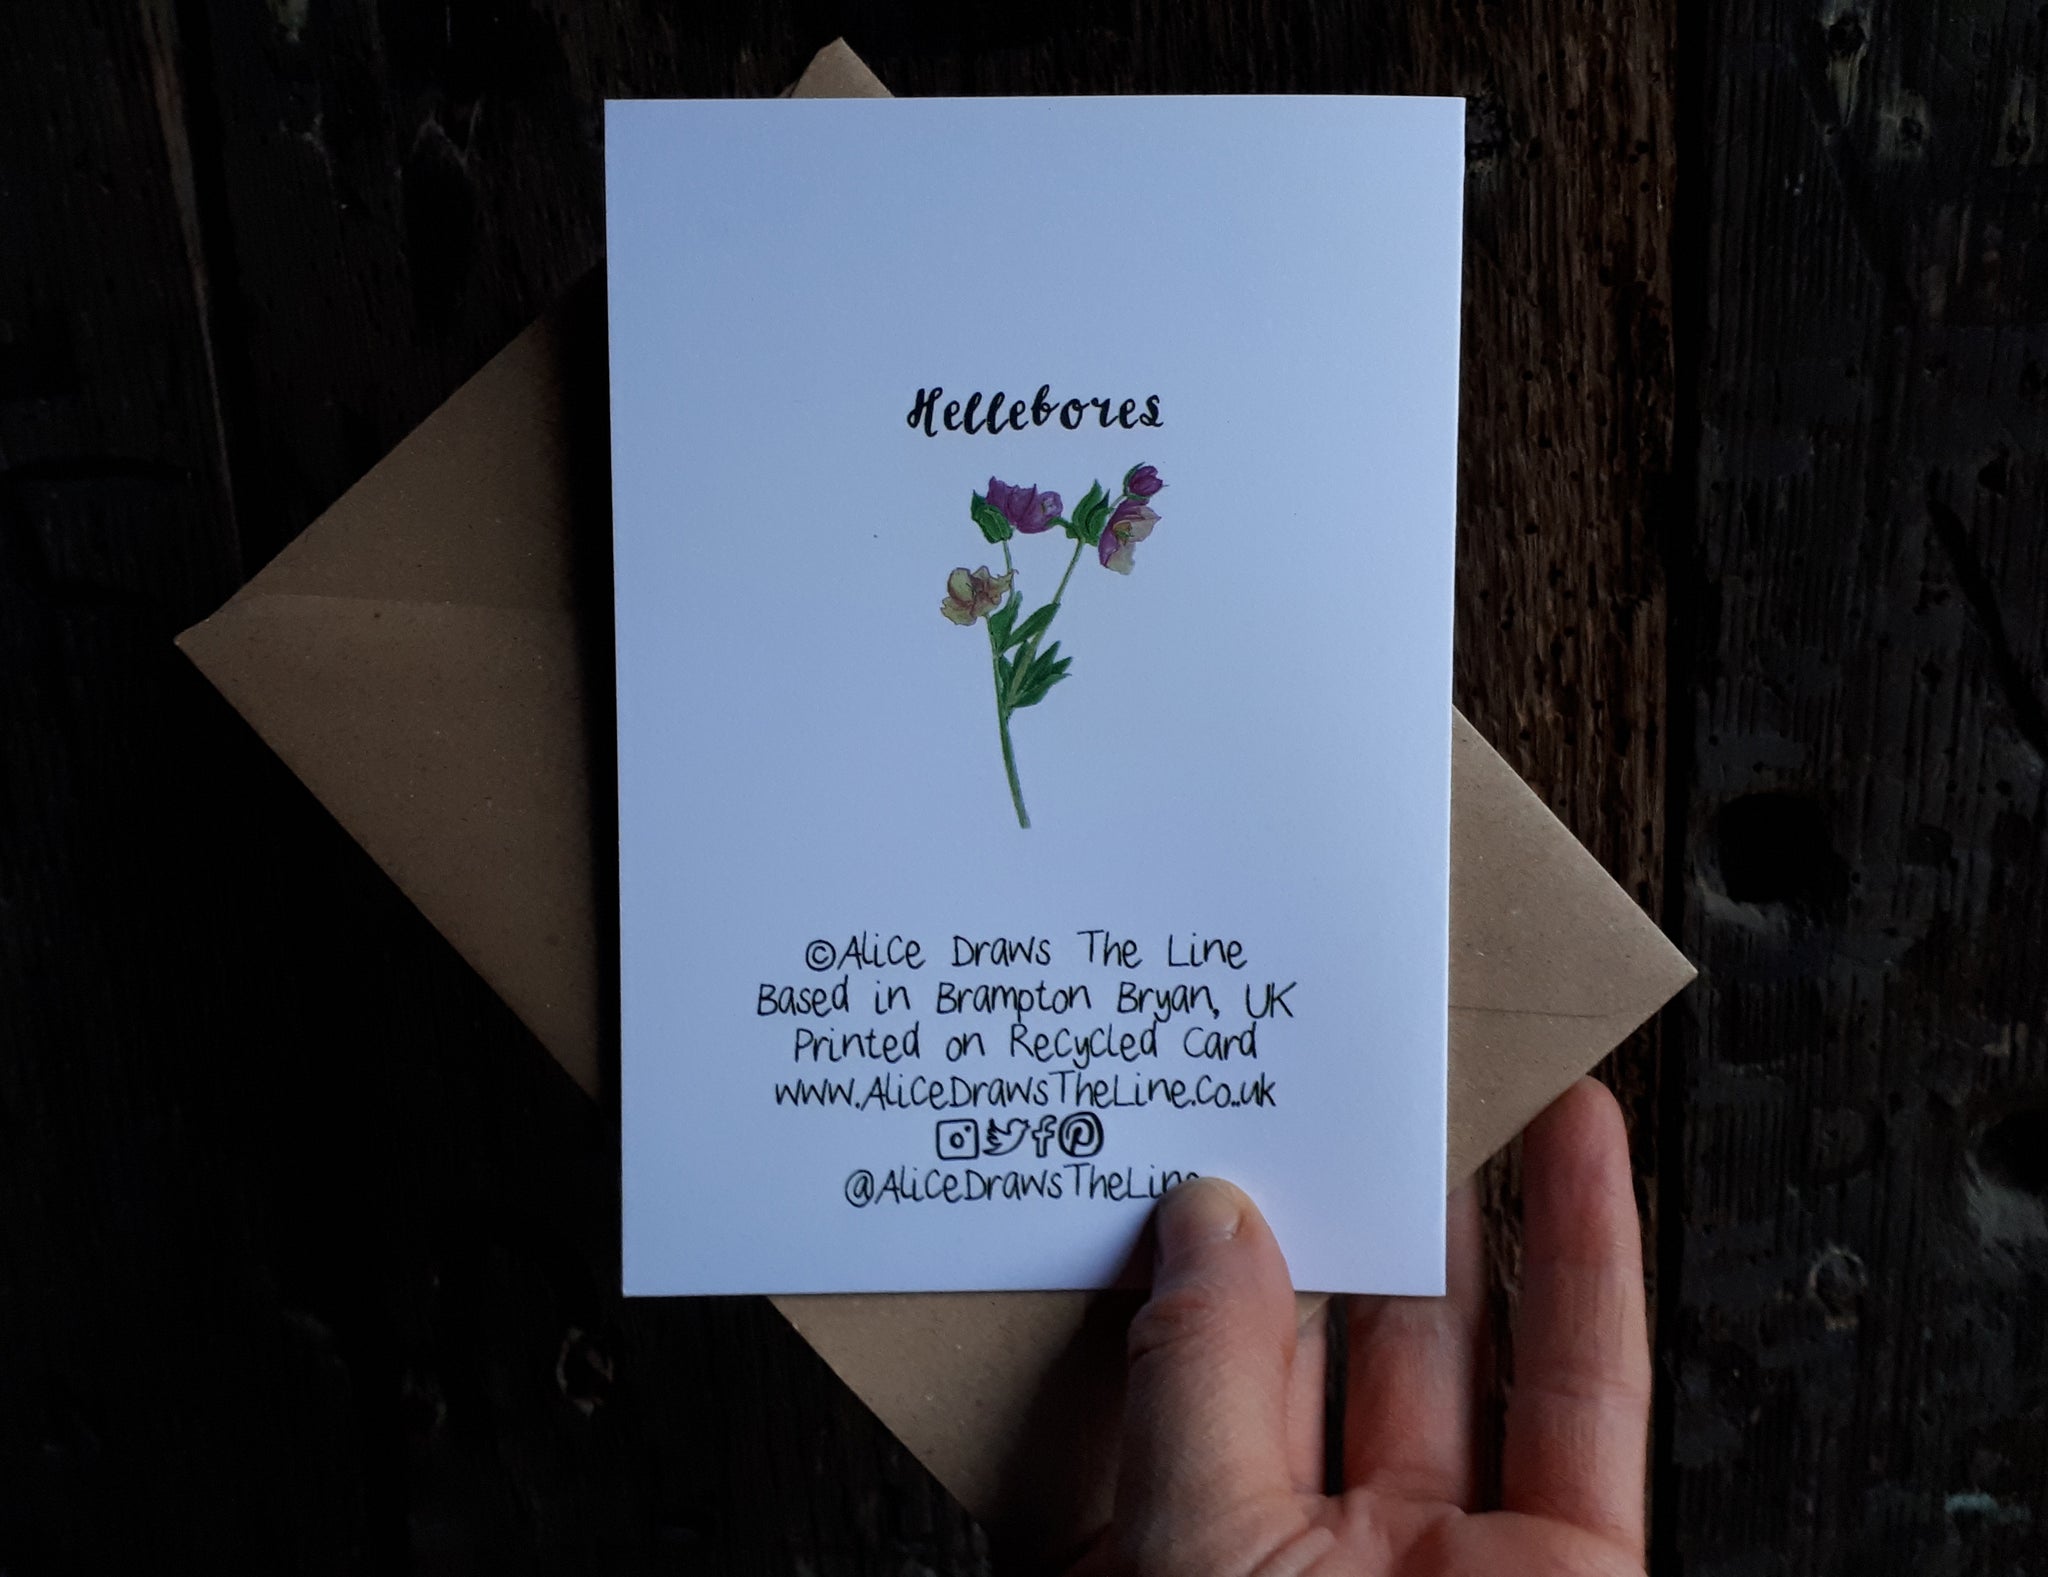 Hellebores
©Alice Draws The Line
Based in Brampton Bryan, UK
Printed on Recycled Card
www.AliceDrawsTheLine.co.uk
@AliceDrawsTheLine